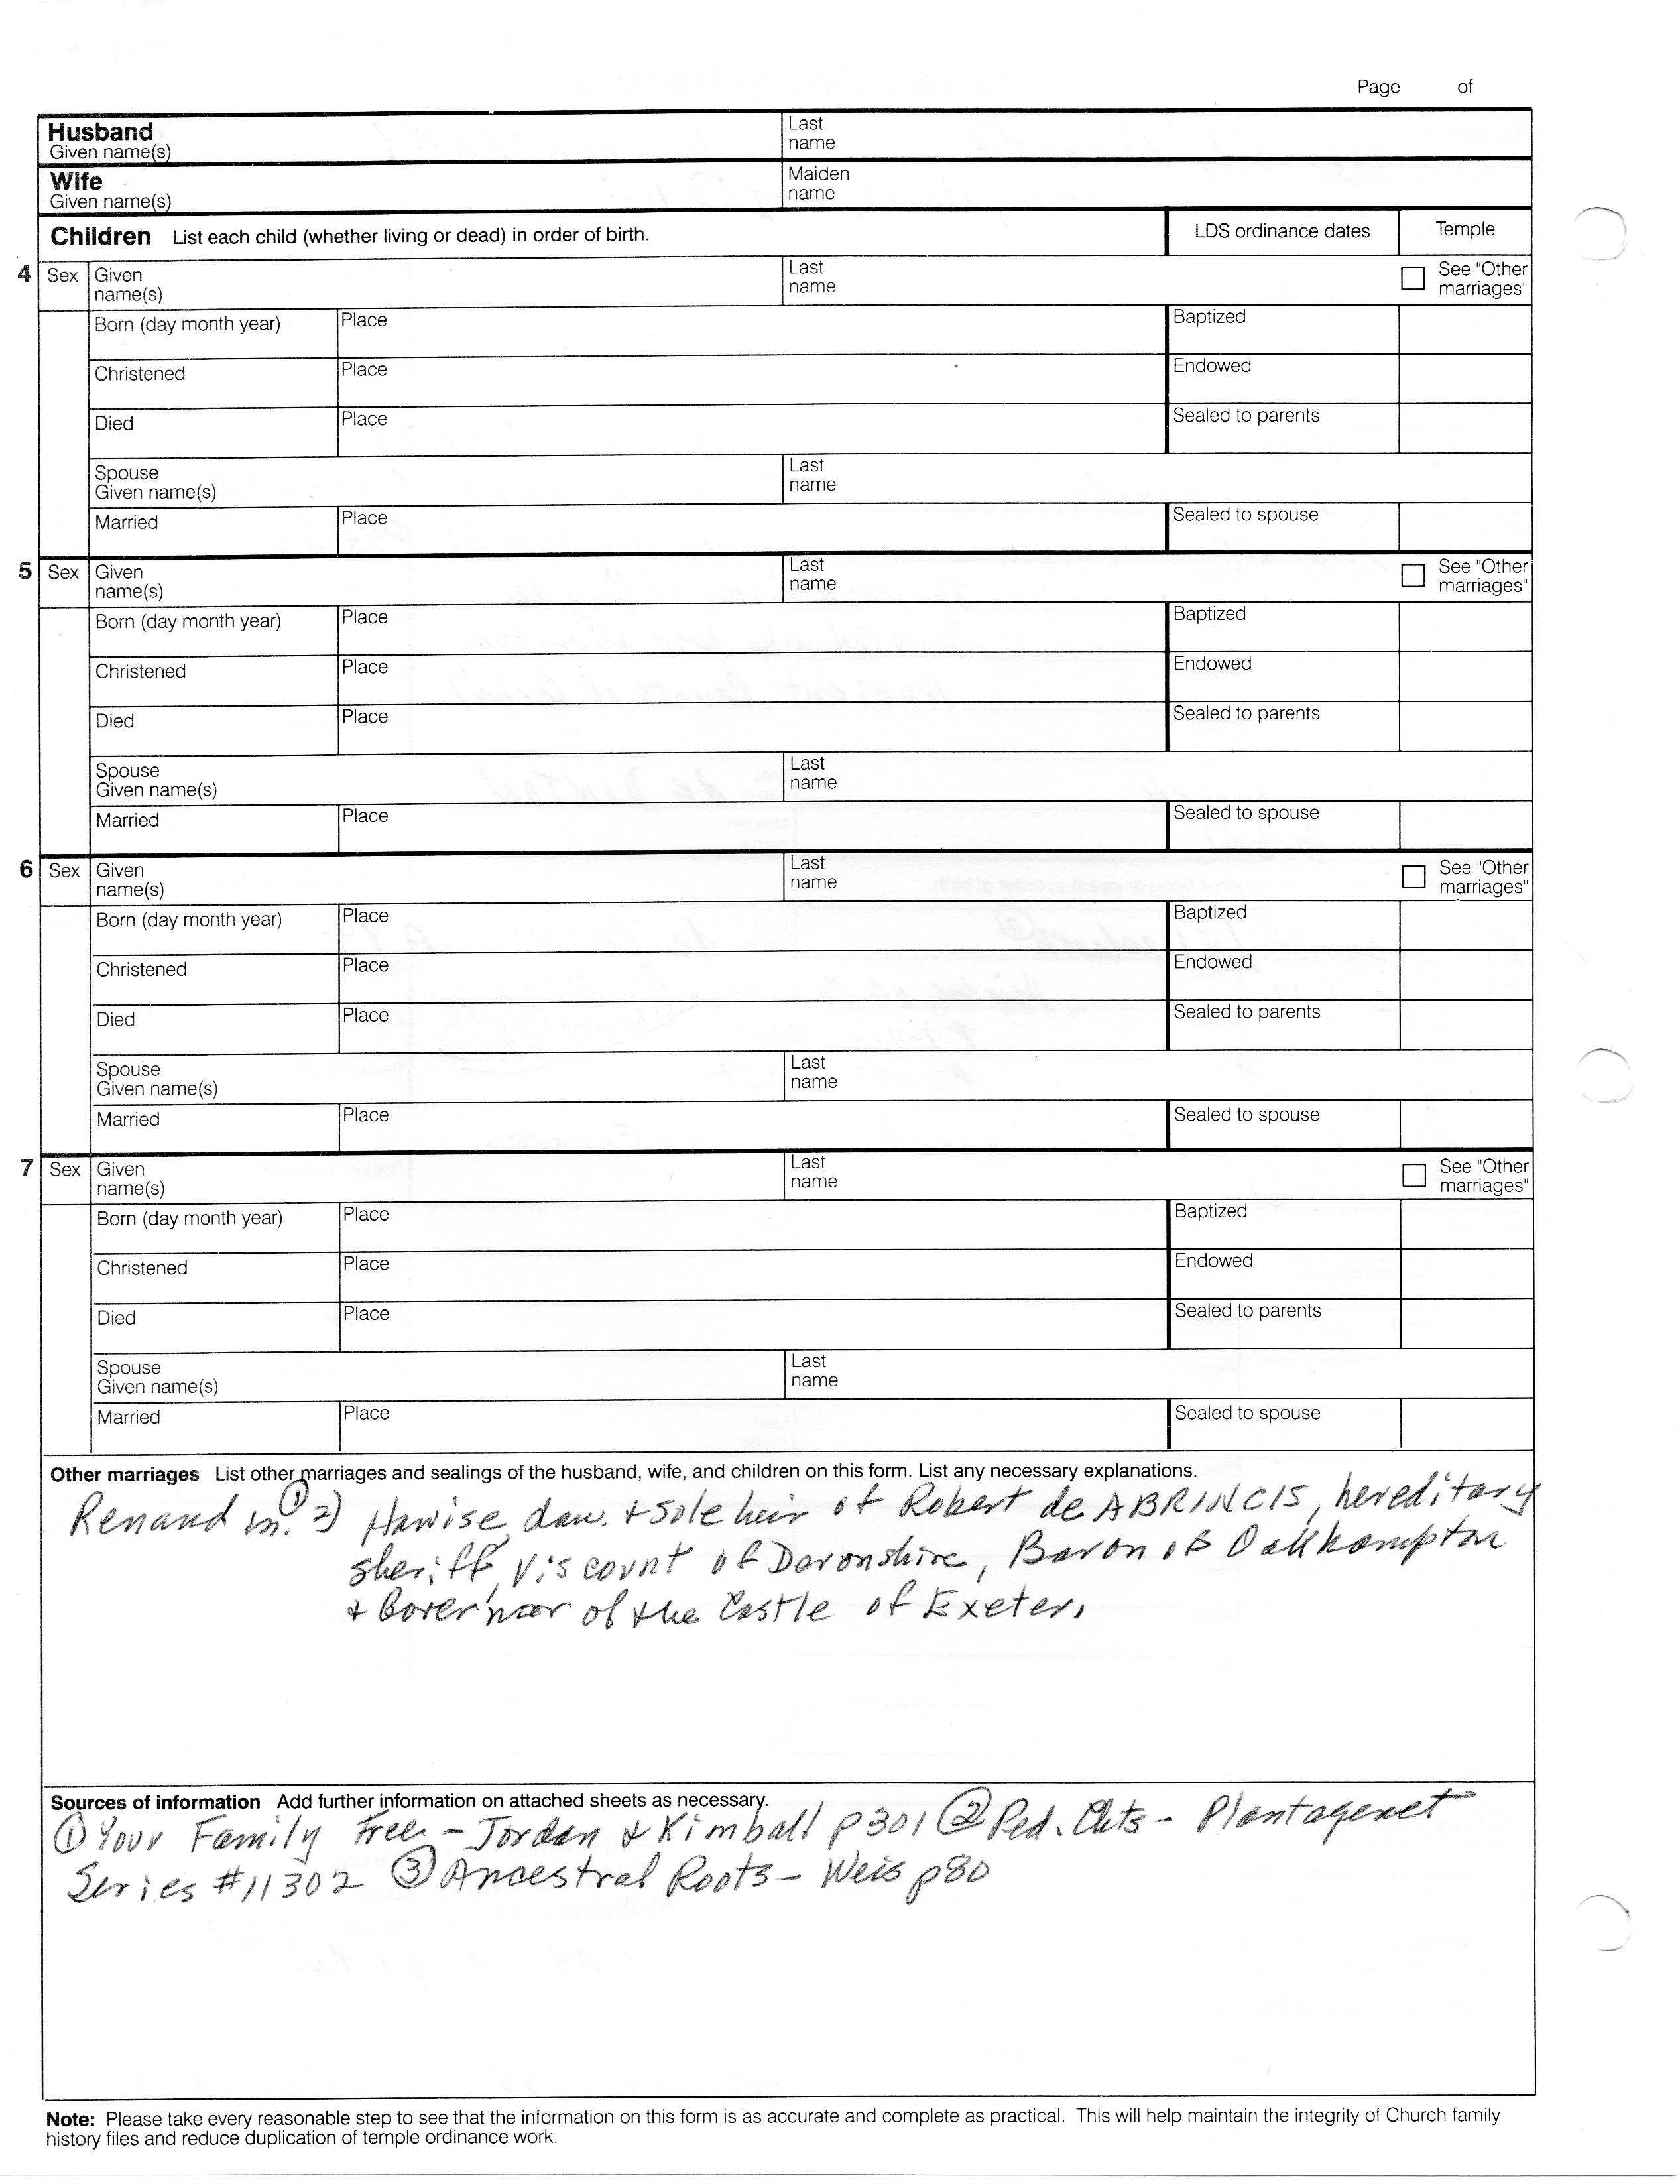 Page of
Husband
Given name(s)
Last
name
Wife
Given name(s)
Maiden
name
Children List each child (whether living or dead) in order of birth.
LDS ordinance dates
Temple
4 Sex Given
name(s)
Last
name
See "Other
marriages"
Born (day month year) Place Baptized
Christened Place Endowed
Died Place Sealed to parents
Spouse
Given name(s)
Last
name
Married Place Sealed to spouse
5 Sex Given
name(s)
Last
name
See "Other
marriages"
Born (day month year) Place Baptized
Christened Place Endowed
Died Place Sealed to parents
Spouse
Given name(s)
Last
name
Married Place Sealed to spouse
6 Sex Given
name(s)
Last
name
See "Other
marriages"
Born (day month year) Place Baptized
Christened Place Endowed
Died Place Sealed to parents
Spouse
Given name(s)
Last
name
Married Place Sealed to spouse
7 Sex Given
name(s)
Last
name
See "Other
marriages"
Born (day month year) Place Baptized
Christened Place Endowed
Died Place Sealed to parents
Spouse
Given name(s)
Last
name
Married Place Sealed to spouse
Other marriages List other marriages and sealings of the husband, wife, and children on this form. List any necessary explanations.
Renaud m. ① 2) Hawise, dau. + sole heir of Robert de ABRINCIS, hereditary
sheriff, Viscount of Devonshire, Baron of Oakhampton
+ Governor of the Castle of Exeter.
Sources of information Add further information on attached sheets as necessary.
① Your Family Tree - Jordan & Kimball p301 ② Ped. Chts - Plantagenet
Series #11302 ③ Ancestral Roots - Weis p80
Note: Please take every reasonable step to see that the information on this form is as accurate and complete as practical. This will help maintain the integrity of Church family
history files and reduce duplication of temple ordinance work.